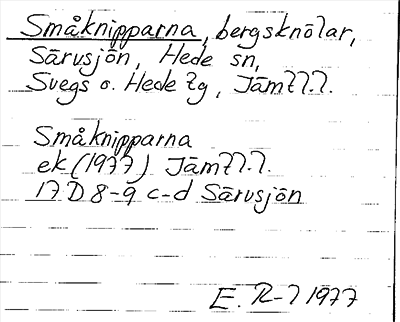 Småknipparna, bergsknölar,
Särvsjön, Hede sn,
Svegs o. Hede tg, Jämtl.l.
Småknipparna
ek (1977) Jämtl.l.
17 D 8-9 c-d Särvsjön
E. R-l 1977